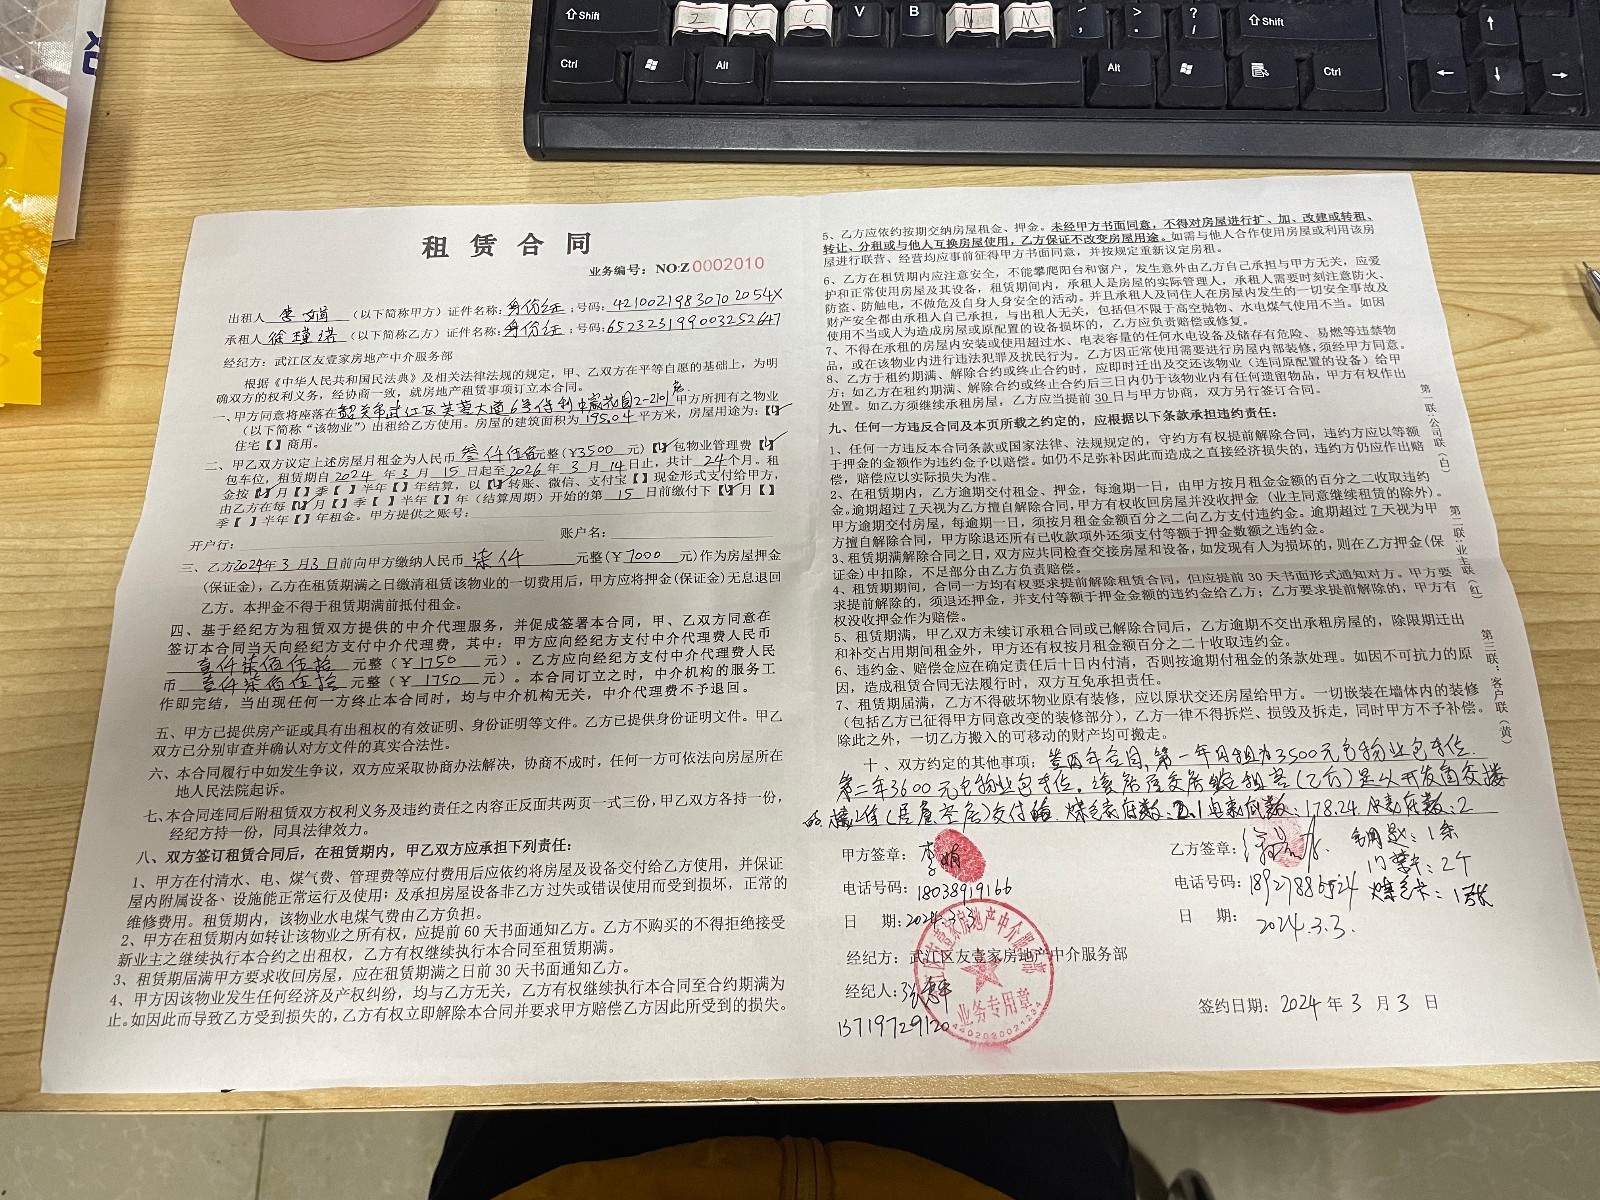 Shift
Z X C V B N M
Shift
Ctrl
Alt
Alt
Ctrl
租赁合同
业务编号：NO:Z 0002010
出租人 李娟 （以下简称甲方）证件名称：身份证；号码：42100219830702054X
承租人 徐瑾诺 （以下简称乙方）证件名称：身份证；号码：652323199003252647
经纪方：武江区友壹家房地产中介服务部
根据《中华人民共和国民法典》及相关法律法规的规定，甲、乙双方在平等自愿的基础上，为明
确双方的权利义务，经协商一致，就房地产租赁事项订立本合同。
一、甲方同意将座落在韶关市武江区芙蓉大道6号保利中宸花园2-2101房 甲方所拥有之物业
（以下简称“该物业”）出租给乙方使用。房屋的建筑面积为 195.04 平方米，房屋用途为：【✓】
住宅【 】商用。
二、甲乙双方议定上述房屋月租金为人民币 叁仟伍佰 元整（¥3500 元）【✓】包物业管理费【✓】
包车位，租赁期自2024 年 3 月 15 日起至2026 年 3 月 14 日止，共计 24 个月。租
金按【✓】月【 】季【 】半年【 】年结算，以【✓】转账、微信、支付宝【 】现金形式支付给甲方，
由乙方在每【✓】月【 】季【 】半年【 】年（结算周期）开始的第 15 日前缴付下【✓】月【 】
季【 】半年【 】年租金。甲方提供之账号：
开户行： 账户名：
三、乙方2024年3月3日前向甲方缴纳人民币 柒仟 元整（¥7000 元）作为房屋押金
（保证金），乙方在租赁期满之日缴清租赁该物业的一切费用后，甲方应将押金（保证金）无息退回
乙方。本押金不得于租赁期满前抵付租金。
四、基于经纪方为租赁双方提供的中介代理服务，并促成签署本合同，甲、乙双方同意在
签订本合同当天向经纪方支付中介代理费，其中：甲方应向经纪方支付中介代理费人民币
壹仟柒佰伍拾 元整（¥ 1750 元）。乙方应向经纪方支付中介代理费人民
币 壹仟柒佰伍拾 元整（¥ 1750 元）。本合同订立之时，中介机构的服务工
作即完结，当出现任何一方终止本合同时，均与中介机构无关，中介代理费不予退回。
五、甲方已提供房产证或具有出租权的有效证明、身份证明等文件。乙方已提供身份证明文件。甲乙
双方已分别审查并确认对方文件的真实合法性。
六、本合同履行中如发生争议，双方应采取协商办法解决，协商不成时，任何一方可依法向房屋所在
地人民法院起诉。
七、本合同连同后附租赁双方权利义务及违约责任之内容正反面共两页一式三份，甲乙双方各持一份，
经纪方持一份，同具法律效力。
八、双方签订租赁合同后，在租赁期内，甲乙双方应承担下列责任：
1、甲方在付清水、电、煤气费、管理费等应付费用后应依约将房屋及设备交付给乙方使用，并保证
屋内附属设备、设施能正常运行及使用；及承担房屋设备非乙方过失或错误使用而受到损坏，正常的
维修费用。租赁期内，该物业水电煤气费由乙方负担。
2、甲方在租赁期内如转让该物业之所有权，应提前60天书面通知乙方。乙方不购买的不得拒绝接受
新业主之继续执行本合约之出租权，乙方有权继续执行本合同至租赁期满。
3、租赁期届满甲方要求收回房屋，应在租赁期满之日前30天书面通知乙方。
4、甲方因该物业发生任何经济及产权纠纷，均与乙方无关，乙方有权继续执行本合同至合约期满为
止。如因此而导致乙方受到损失的，乙方有权立即解除本合同并要求甲方赔偿乙方因此所受到的损失。
5、乙方应依约按期交纳房屋租金、押金。未经甲方书面同意，不得对房屋进行扩、加、改建或转租、
转让、分租或与他人互换房屋使用，乙方保证不改变房屋用途。如需与他人合作使用房屋或利用该房
屋进行联营、经营均应事前征得甲方书面同意，并按规定重新议定房租。
6、乙方在租赁期内应注意安全，不能攀爬阳台和窗户，发生意外由乙方自己承担与甲方无关，应爱
护和正常使用房屋及其设备，租赁期间内，承租人是房屋的实际管理人，承租人需要时刻注意防火、
防盗、防触电，不做危及自身人身安全的活动。并且承租人及同住人在房屋内发生的一切安全事故及
财产安全都由承租人自己承担，与出租人无关，包括但不限于高空抛物、水电煤气使用不当。如因
使用不当或人为造成房屋或原配置的设备损坏的，乙方应负责赔偿或修复。
7、不得在承租的房屋内安装或使用超过水、电表容量的任何水电设备及储存有危险、易燃等违禁物
品，或在该物业内进行违法犯罪及扰民行为。乙方因正常使用需要进行房屋内部装修，须经甲方同意。
8、乙方于租约期满、解除合约或终止合约时，应即时迁出及交还该物业（连同原配置的设备）给甲
方；如乙方在租约期满、解除合约或终止合约后三日内仍于该物业内有任何遗留物品，甲方有权作出
处置。如乙方须继续承租房屋，乙方应当提前30日与甲方协商，双方另行签订合同。
九、任何一方违反合同及本页所载之约定的，应根据以下条款承担违约责任：
1、任何一方违反本合同条款或国家法律、法规规定的，守约方有权提前解除合同，违约方应以等额
于押金的金额作为违约金予以赔偿。如仍不足弥补因此而造成之直接经济损失的，违约方仍应作出赔
偿，赔偿应以实际损失为准。
2、在租赁期内，乙方逾期交付租金、押金，每逾期一日，由甲方按月租金金额的百分之二收取违约
金。逾期超过7天视为乙方擅自解除合同，甲方有权收回房屋并没收押金（业主同意继续租赁的除外）。
甲方逾期交付房屋，每逾期一日，须按月租金金额百分之二向乙方支付违约金。逾期超过7天视为甲
方擅自解除合同，甲方除退还所有已收款项外还须支付等额于押金数额之违约金。
3、租赁期满解除合同之日，双方应共同检查交接房屋和设备，如发现有人为损坏的，则在乙方押金（保
证金）中扣除，不足部分由乙方负责赔偿。
4、租赁期期间，合同一方均有权要求提前解除租赁合同，但应提前30天书面形式通知对方。甲方要
求提前解除的，须退还押金，并支付等额于押金金额的违约金给乙方；乙方要求提前解除的，甲方有
权没收押金作为赔偿。
5、租赁期满，甲乙双方未续订承租合同或已解除合同后，乙方逾期不交出承租房屋的，除限期迁出
和补交占用期间租金外，甲方还有权按月租金额百分之二十收取违约金。
6、违约金、赔偿金应在确定责任后十日内付清，否则按逾期付租金的条款处理。如因不可抗力的原
因，造成租赁合同无法履行时，双方互免承担责任。
7、租赁期届满，乙方不得破坏物业原有装修，应以原状交还房屋给甲方。一切嵌装在墙体内的装修
（包括乙方已征得甲方同意改变的装修部分），乙方一律不得拆烂、损毁及拆走，同时甲方不予补偿。
除此之外，一切乙方搬入的可移动的财产均可搬走。
十、双方约定的其他事项：签两年合同，第一年月租为3500元包物业包车位.
第二年3600元包物业包车位。该房屋交房给租客（乙方）是以开发商交楼
的 标准（居屋空房）交付 煤气表底数：2.1 电表底数：178.24. 水表底数：2
甲方签章：李娟
电话号码：18038919166
日 期：2024.3.3
经纪方：武江区友壹家房地产中介服务部
经纪人：
13719729120
乙方签章：
电话号码：18927886524
日 期：2024.3.3.
钥匙：1条
门禁卡：2个
煤气卡：1张
签约日期：2024 年 3 月 3 日
业务专用章
第一联：公司联（白）
第二联：业主联（红）
第三联：客户联（黄）